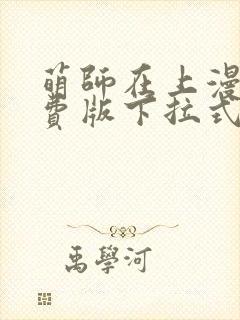 萌師在上漫
費版下拉式
禹學河